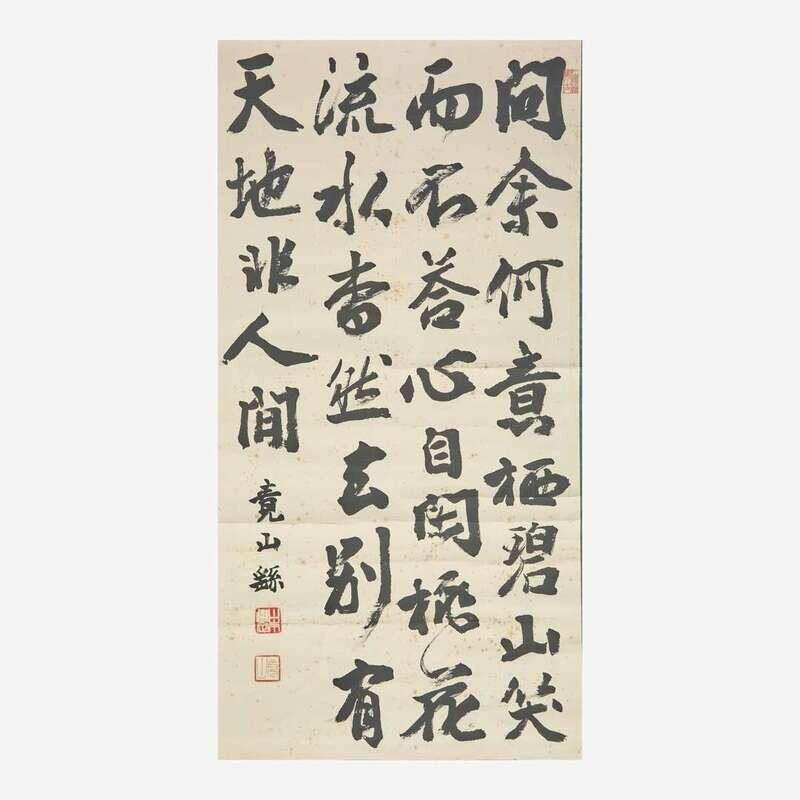 問余何意栖碧山笑
而不答心自閑桃花
流水杳然去別有
天地非人間
竟山繇